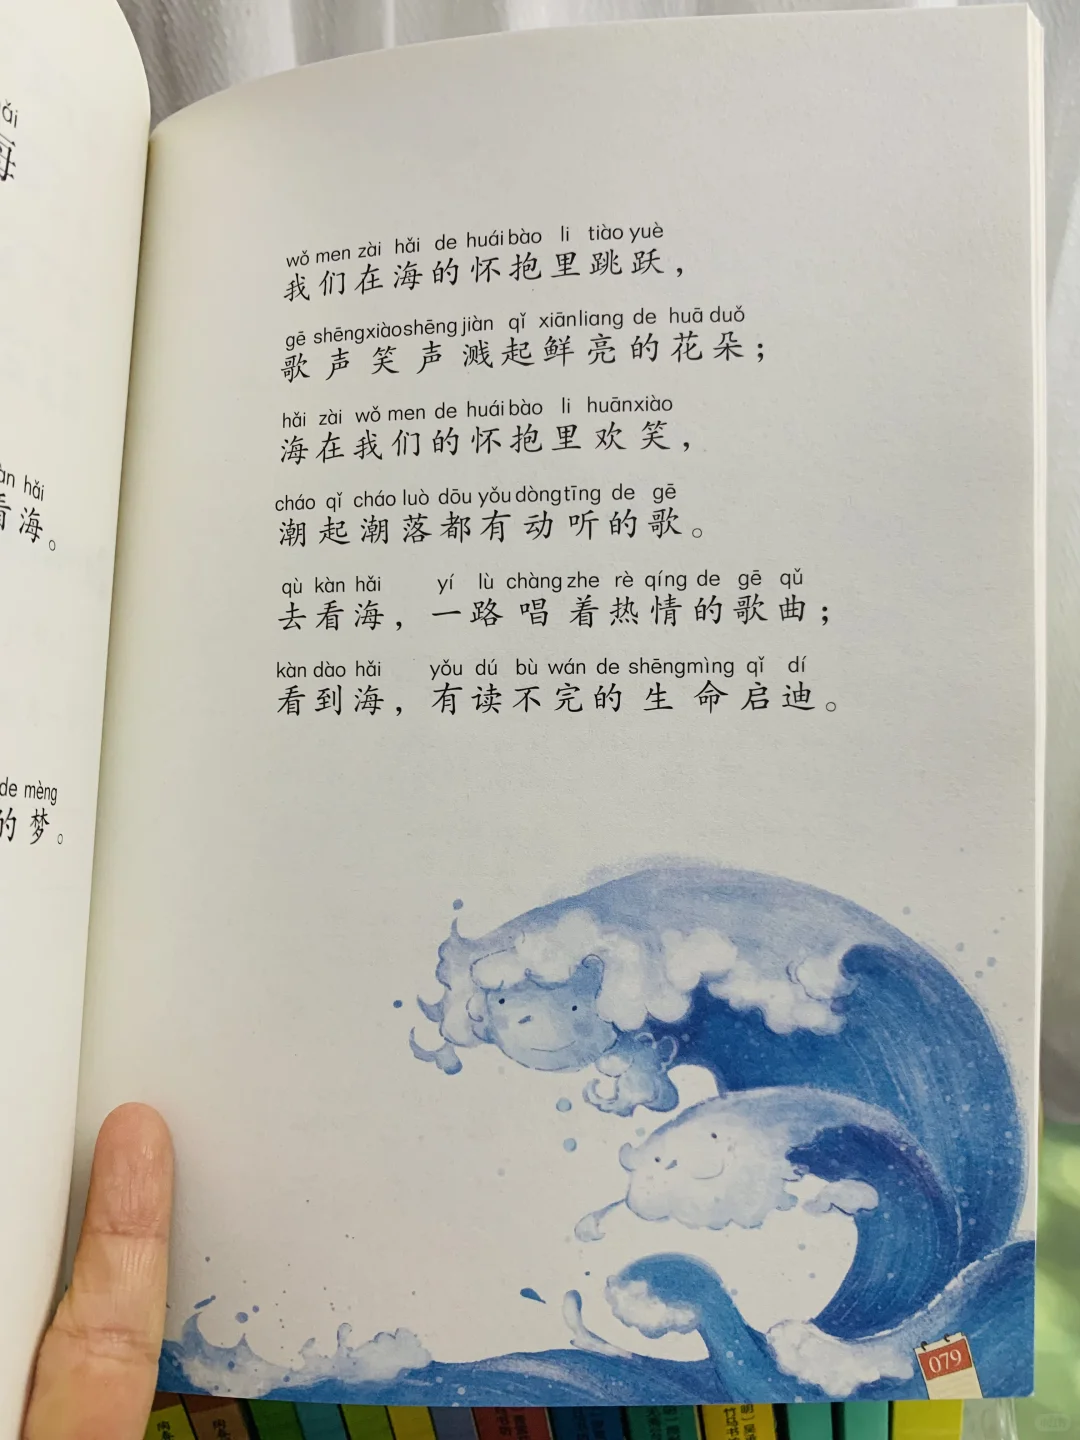 ǎi
海
àn hǎi
看海。
de mèng
的梦。
wǒ men zài hǎi de huái bào li tiào yuè
我们在海的怀抱里跳跃，
gē shēng xiào shēng jiàn qǐ xiān liang de huā duǒ
歌声笑声溅起鲜亮的花朵；
hǎi zài wǒ men de huái bào li huān xiào
海在我们的怀抱里欢笑，
cháo qǐ cháo luò dōu yǒu dòng tīng de gē
潮起潮落都有动听的歌。
qù kàn hǎi yí lù chàng zhe rè qíng de gē qǔ
去看海，一路唱着热情的歌曲；
kàn dào hǎi yǒu dú bù wán de shēng mìng qǐ dí
看到海，有读不完的生命启迪。
079